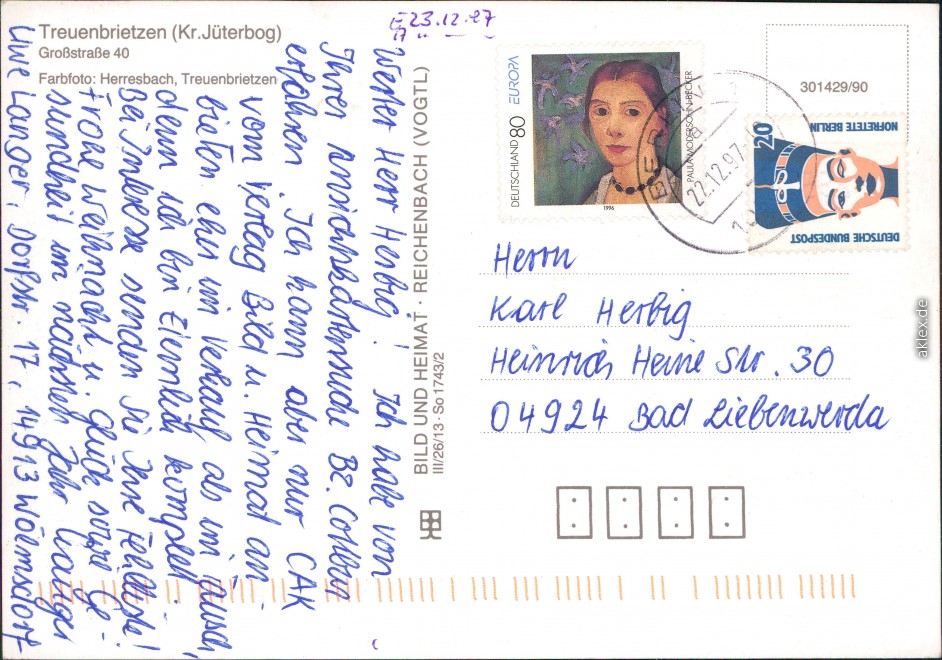 E 23.12.97
Treuenbrietzen (Kr.Jüterbog)
Großstraße 40
Farbfoto: Herresbach, Treuenbrietzen
Werter Herr Herbig! Ich habe von
Ihrer Ansichtskartensuche Bz. Cottbus
erfahren. Ich kann aber nur CAK
vom Verlag Bild u. Heimat an
bieten eher im Verkauf als im Tausch,
denn ich bin ziemlich komplett.
Bei Interesse senden Sie Ihre Fehlliste!
Frohe Weihnacht u. Glück sowie Ge-
sundheit im nächsten Jahr Langer
Uwe Langer, Dorfstr. 17, 14913 Wölmsdorf
BILD UND HEIMAT · REICHENBACH (VOGTL)
III/26/13 · So 1743/2
EUROPA
DEUTSCHLAND 80
PAULA MODERSOHN-BECKER
1996
BERLIN
22.12.97
301429/90
20
NOFRETETE BERLIN
DEUTSCHE BUNDESPOST
Herrn
Karl Herbig
Heinrich Heine Str. 30
04924 Bad Liebenwerda
aklex.de